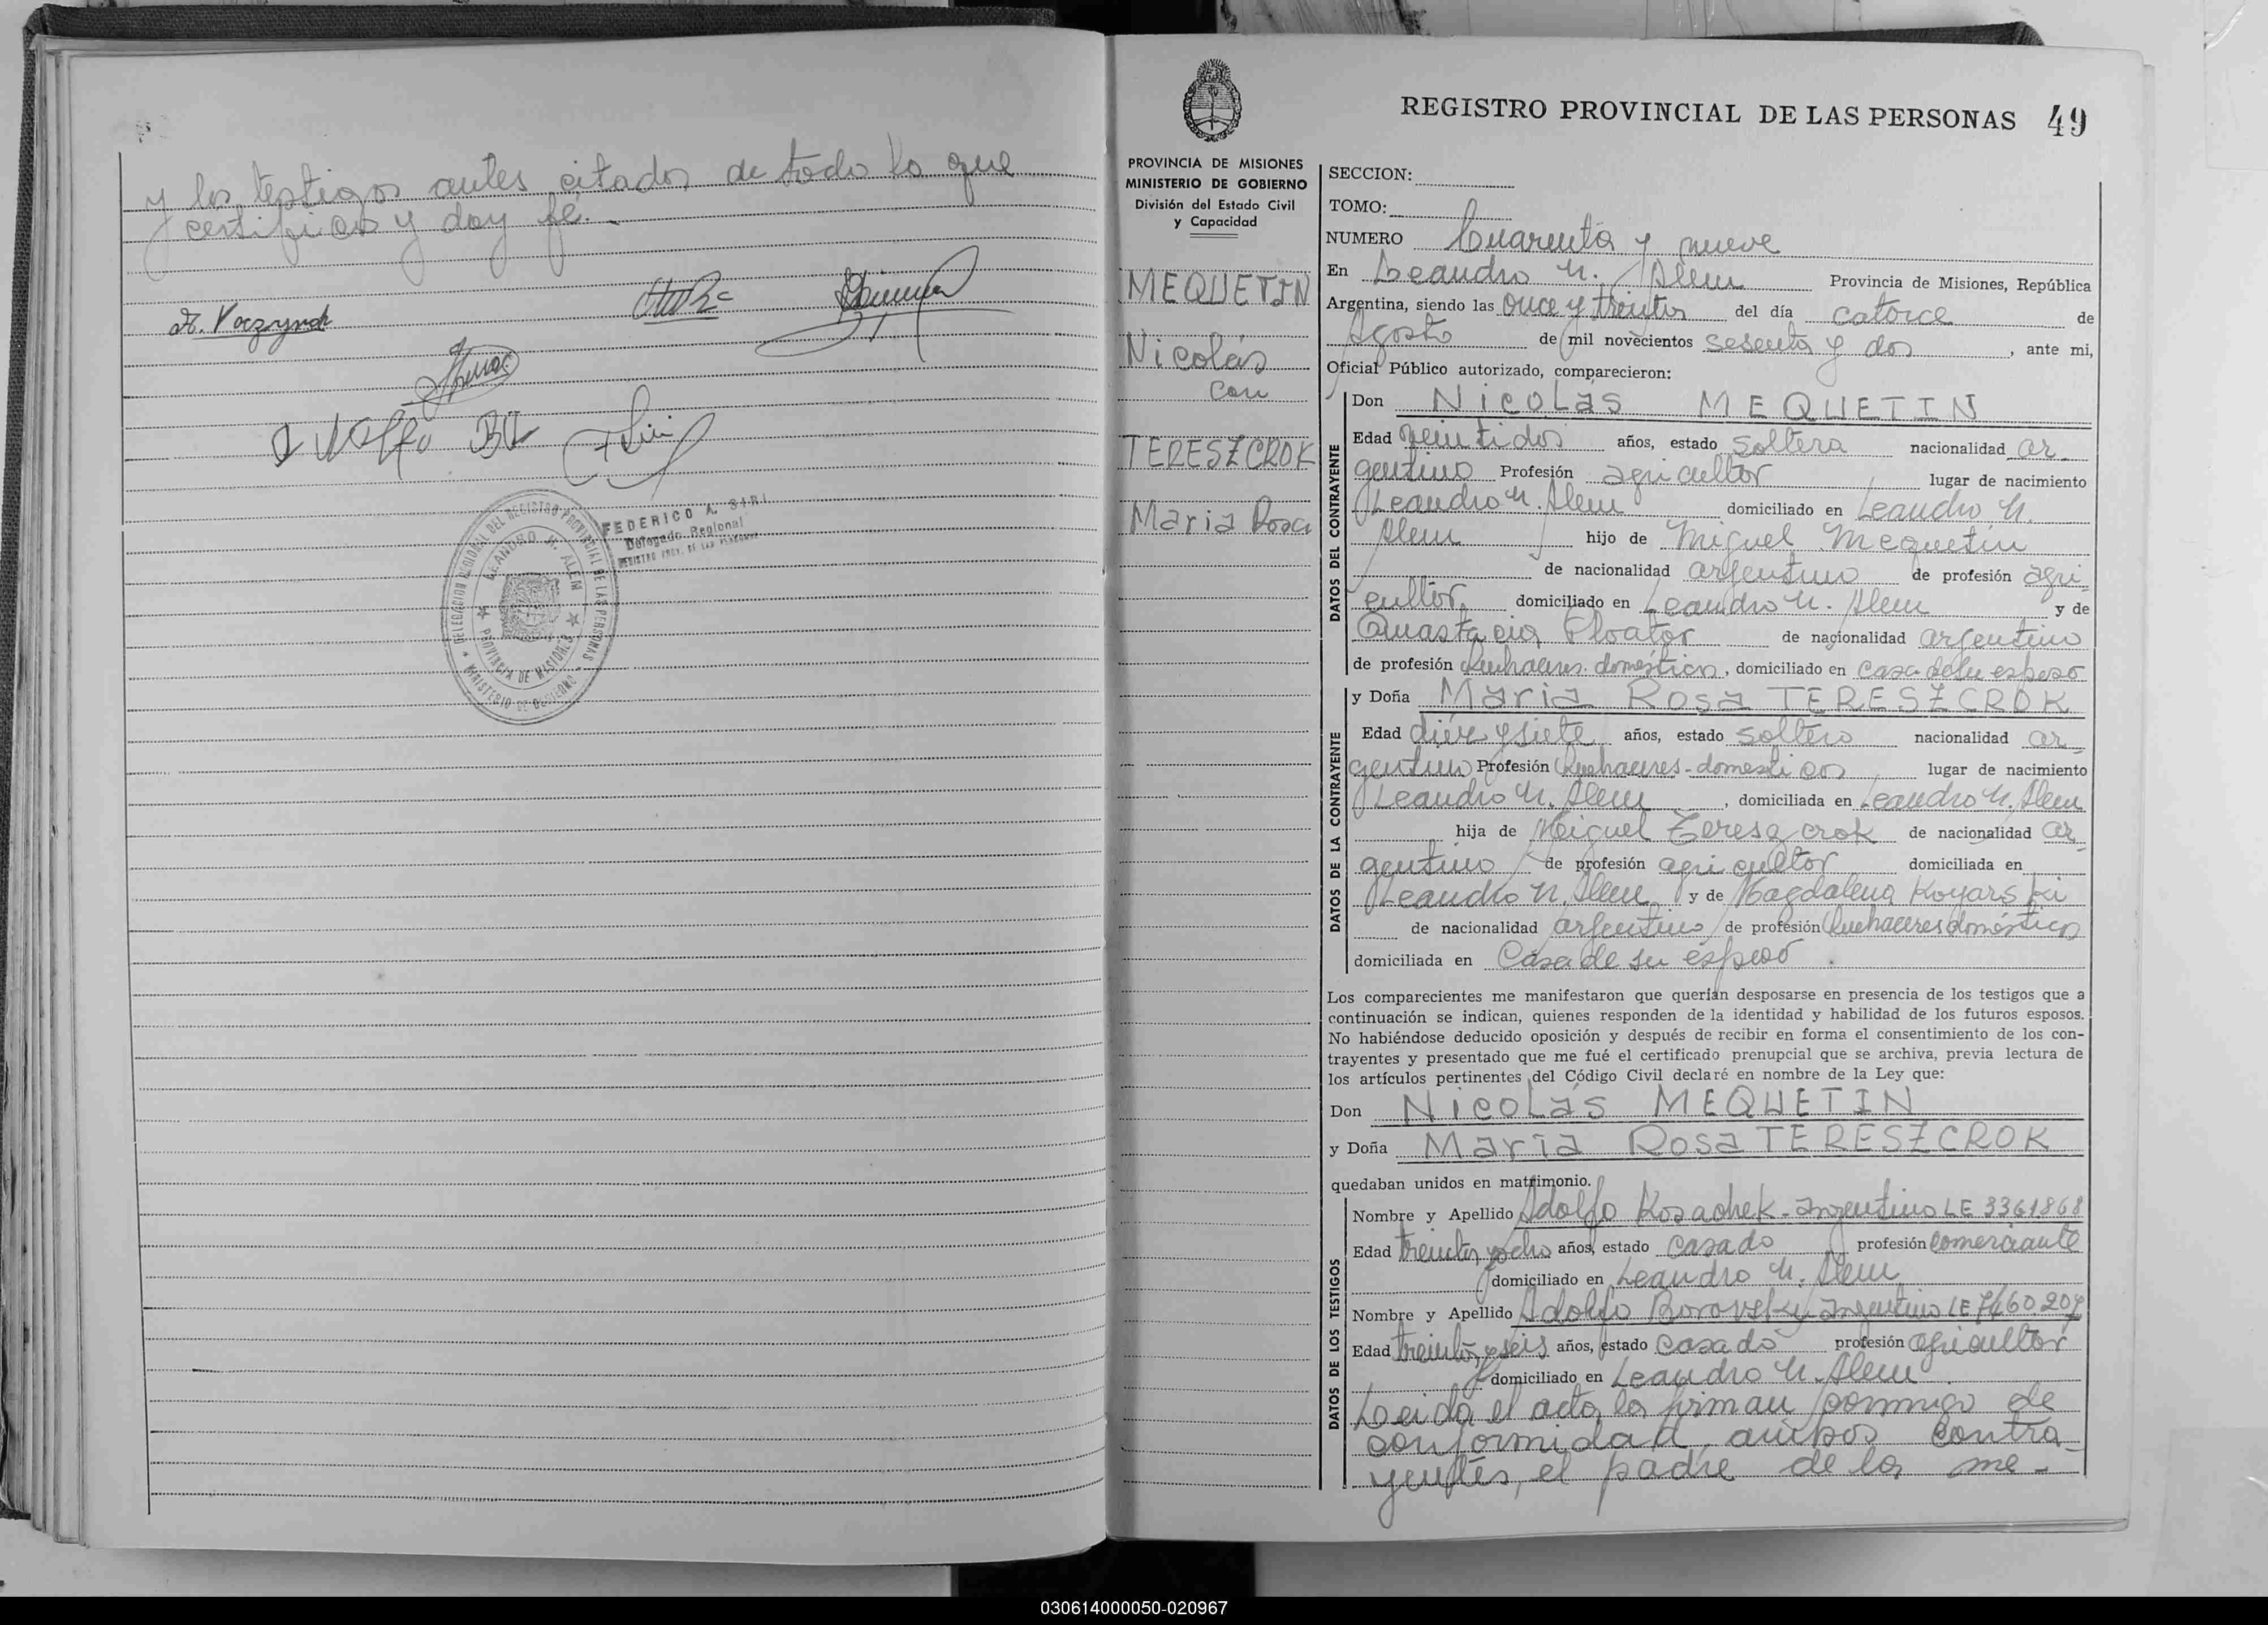 y los testigos antes citados de todo lo que
certifico y doy fé.
FEDERICO A. SIRI
Delegado Regional
REGISTRO PROV. DE LAS PERSONAS
DELEGACION REGIONAL DEL REGISTRO PROVINCIAL DE LAS PERSONAS
LEANDRO N. ALEM
PROVINCIA DE MISIONES
MINISTERIO DE GOBIERNO
REGISTRO PROVINCIAL DE LAS PERSONAS 49
PROVINCIA DE MISIONES
MINISTERIO DE GOBIERNO
División del Estado Civil
y Capacidad
MEQUETIN
Nicolás
con
TERESZCROK
Maria Rosa
SECCION:
TOMO:
NUMERO Cuarenta y nueve
En Leandro N. Alem Provincia de Misiones, República
Argentina, siendo las Once y treinta del día catorce de
Agosto de mil novecientos sesenta y dos, ante mi,
Oficial Público autorizado, comparecieron:
DATOS DEL CONTRAYENTE
Don Nicolás MEQUETIN
Edad veintidos años, estado soltera nacionalidad ar-
gentino Profesión agricultor lugar de nacimiento
Leandro N. Alem domiciliado en Leandro N.
Alem hijo de Miguel Mequetin
de nacionalidad argentino de profesión agri-
cultor, domiciliado en Leandro N. Alem y de
Anastacia de nacionalidad argentino
de profesión Quehaceres domésticos, domiciliado en casa de su esposo
DATOS DE LA CONTRAYENTE
y Doña Maria Rosa TERESZCROK
Edad diez y siete años, estado soltero nacionalidad ar-
gentino Profesión Quehaceres-domesticos lugar de nacimiento
Leandro N. Alem, domiciliada en Leandro N. Alem
hija de Miguel Tereszcrok de nacionalidad ar-
gentino de profesión agricultor domiciliada en
Leandro N. Alem y de Magdalena Koyarski
de nacionalidad argentino de profesión Quehaceres domésticos
domiciliada en Casa de su esposo.
Los comparecientes me manifestaron que querían desposarse en presencia de los testigos que a
continuación se indican, quienes responden de la identidad y habilidad de los futuros esposos.
No habiéndose deducido oposición y después de recibir en forma el consentimiento de los con-
trayentes y presentado que me fué el certificado prenupcial que se archiva, previa lectura de
los artículos pertinentes del Código Civil declaré en nombre de la Ley que:
Don Nicolás MEQUETIN
y Doña Maria Rosa TERESZCROK
quedaban unidos en matrimonio.
DATOS DE LOS TESTIGOS
Nombre y Apellido Adolfo Kozachek-argentino LE 3361868
Edad treinta y ocho años, estado casado profesión comerciante
domiciliado en Leandro N. Alem
Nombre y Apellido Adolfo Borovsky-argentino LE 7460.207
Edad treinta y seis años, estado casado profesión agricultor
domiciliado en Leandro N. Alem.
Leida el acta la firman conmigo de
conformidad ambos contra-
yentes, el padre de la me-
030614000050-020967